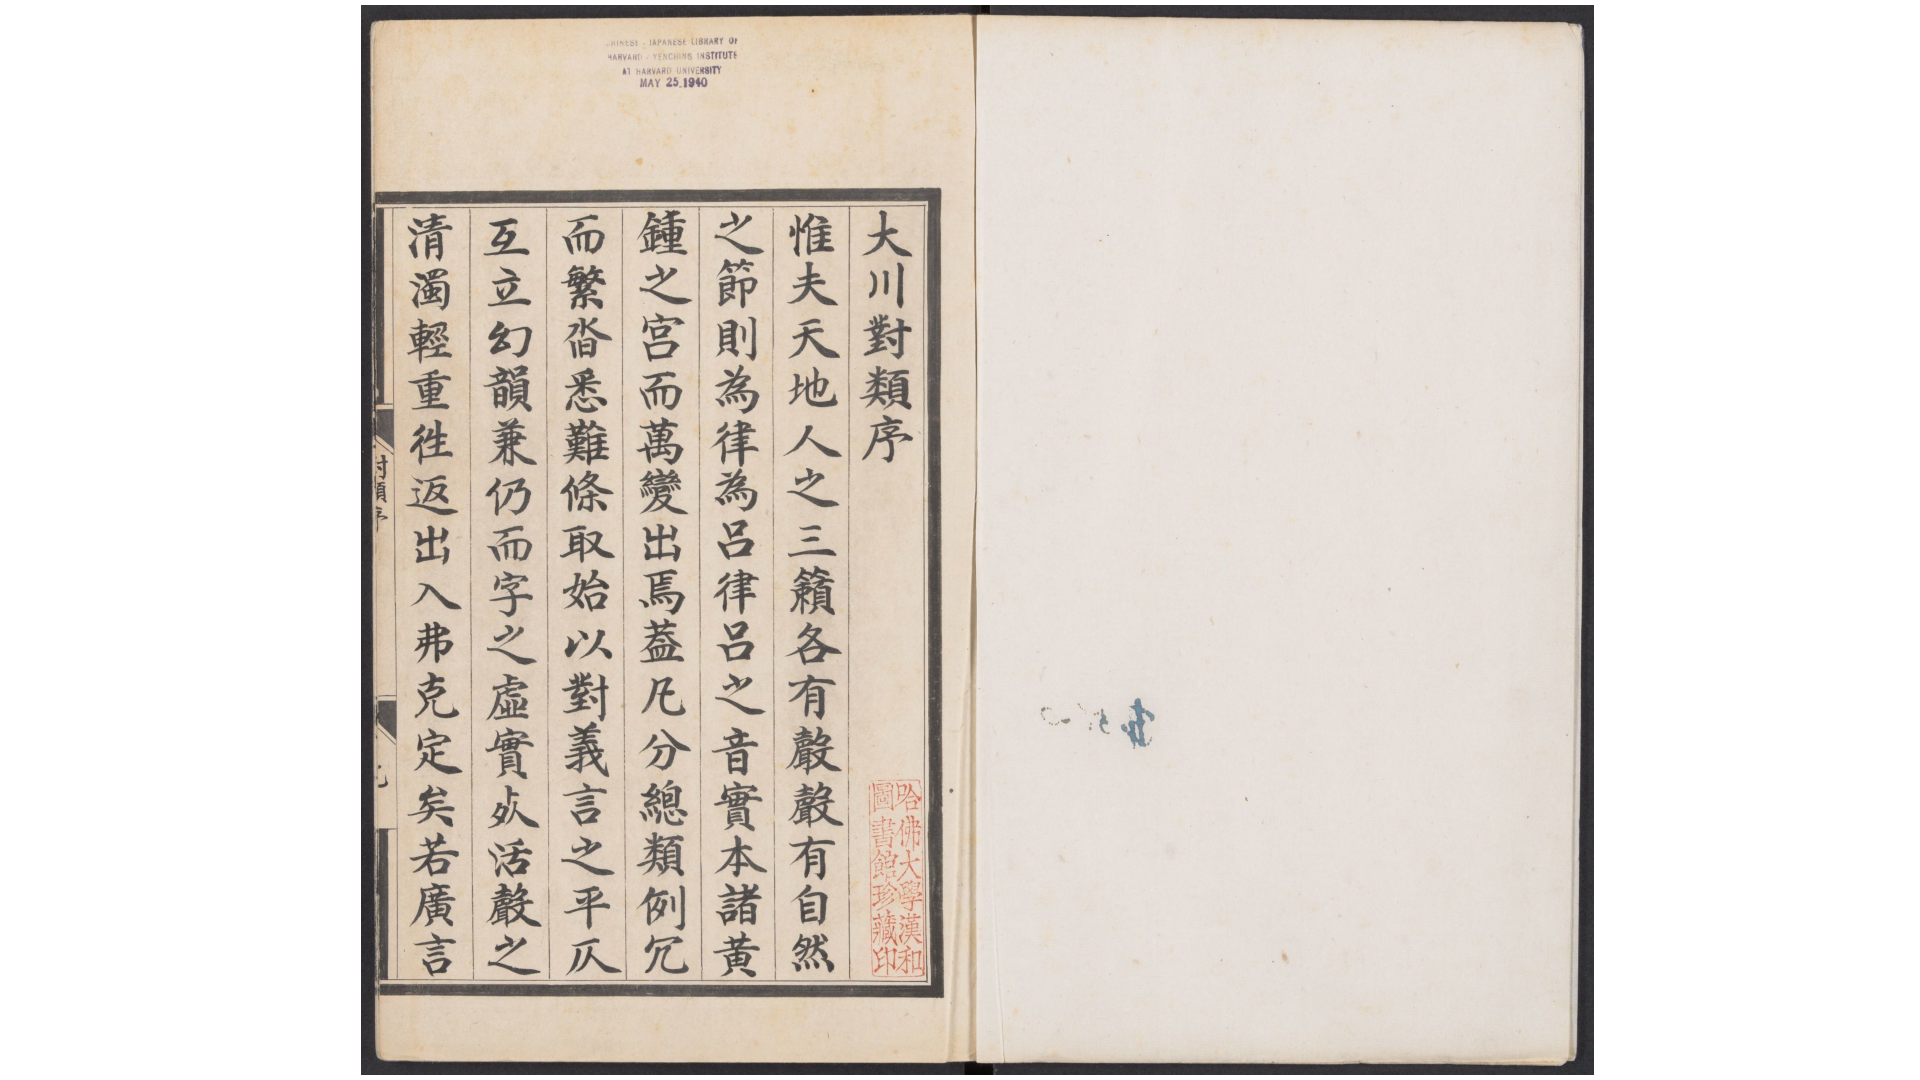 大川對類序
惟夫天地人之三籟各有聲聲有自然
之節則為律為呂律呂之音實本諸黃
鍾之宮而萬變出焉葢凡分總類例冗
而繁沓悉難條取始以對義言之平仄
互立幻韻兼仍而字之虛實㱕活聲之
清濁輕重徃返出入弗克定矣若廣言
對類序
哈佛大學漢和
圖書館珍藏印
CHINESE - JAPANESE LIBRARY OF
HARVARD - YENCHING INSTITUTE
AT HARVARD UNIVERSITY
MAY 25 1940